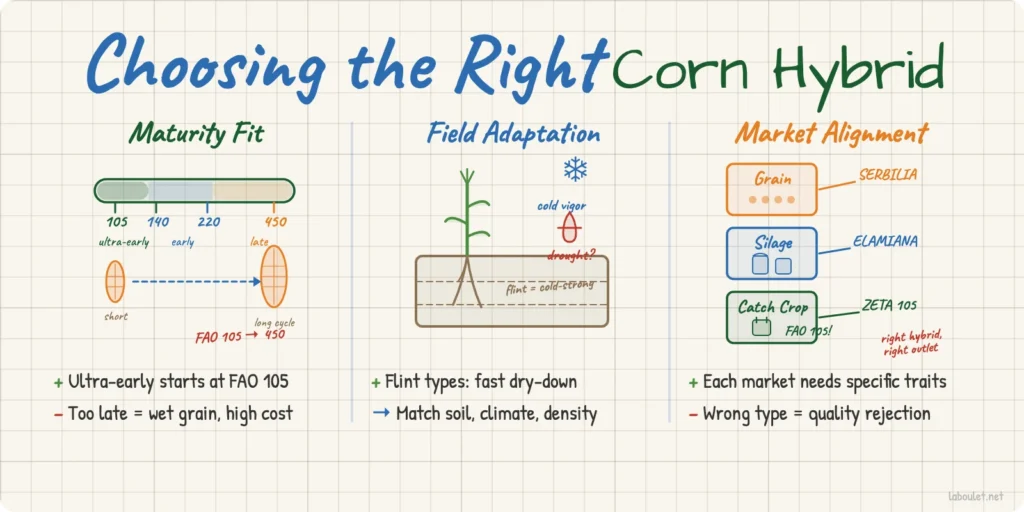 Choosing the Right Corn Hybrid
Maturity Fit
105 140 220 450
ultra-early early late
short
long cycle
FAO 105 → 450
+ Ultra-early starts at FAO 105
− Too late = wet grain, high cost
Field Adaptation
cold vigor
drought?
flint = cold-strong
+ Flint types: fast dry-down
→ Match soil, climate, density
Market Alignment
Grain
SERBILIA
Silage
ELAMIANA
Catch Crop
ZETA 105
FAO 105!
right hybrid,
right outlet
+ Each market needs specific traits
− Wrong type = quality rejection
laboulet.net